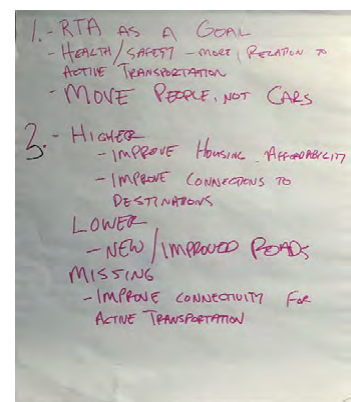 1. - RTA AS A GOAL
- HEALTH/SAFETY - MORE RELATION TO
ACTIVE TRANSPORTATION
- MOVE PEOPLE, NOT CARS
3. - HIGHER
- IMPROVE HOUSING AFFORDABILITY
- IMPROVE CONNECTIONS TO
DESTINATIONS
LOWER
- NEW/IMPROVED ROADS
MISSING
- IMPROVE CONNECTIVITY FOR
ACTIVE TRANSPORTATION